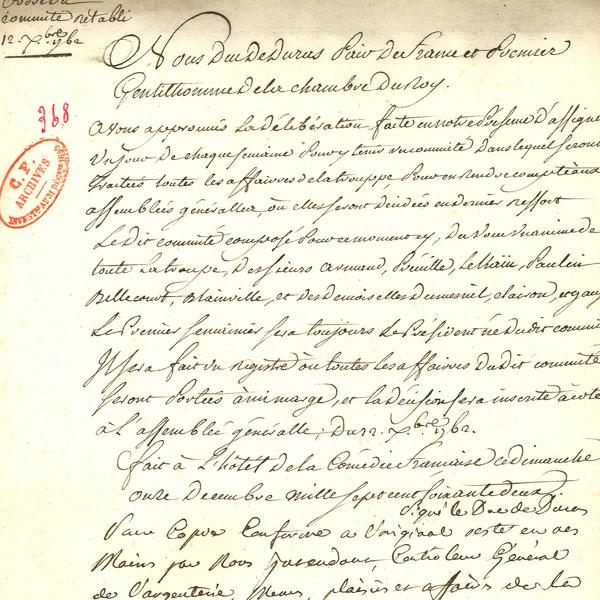 comité rétabli
12. Xbre 1762
368
C. F.
ARCHIVES
Nous Duc De Duras Pair De france et Premier
Gentilhomme De la chambre Du Roy.
avons approuvés La délibération faite en notre Présence D'assigner
un jour De chaque semaine Pour y tenir un committé Dans lequel seront
traitées toutes les affaires de la trouppe, Pour en rendre compte aux
assemblées généralles, où elles seront décidées en dernier ressort
Le dit committé composé Pour ce moment cy, Du voeu unanime de
toute La trouppe, Des sieurs armand, Préville, LeKain, Paulin
Bellecourt, Blainville, et des demoiselles Dumesnil, clairon, et gau
Le Premier semainier sera toujours Le Président né Dudit commit
Il sera fait un registre où toutes les affaires Dudit committé
seront Portées à mi marge, et la décision sera inscrite à côté
à L'assemblée généralle, Du 12. Xbre. 1762.
fait à L'hôtel de la Comédie francaise ce dimanche
onze Decembre mille sept cent soixante deux.
Signé le Duc de Duras
Pour Copie Conforme a l'original resté en nes
Mains par Nous Intendant, Controleur Général
de l'argenterie, Menus, plaisirs et affaires de la